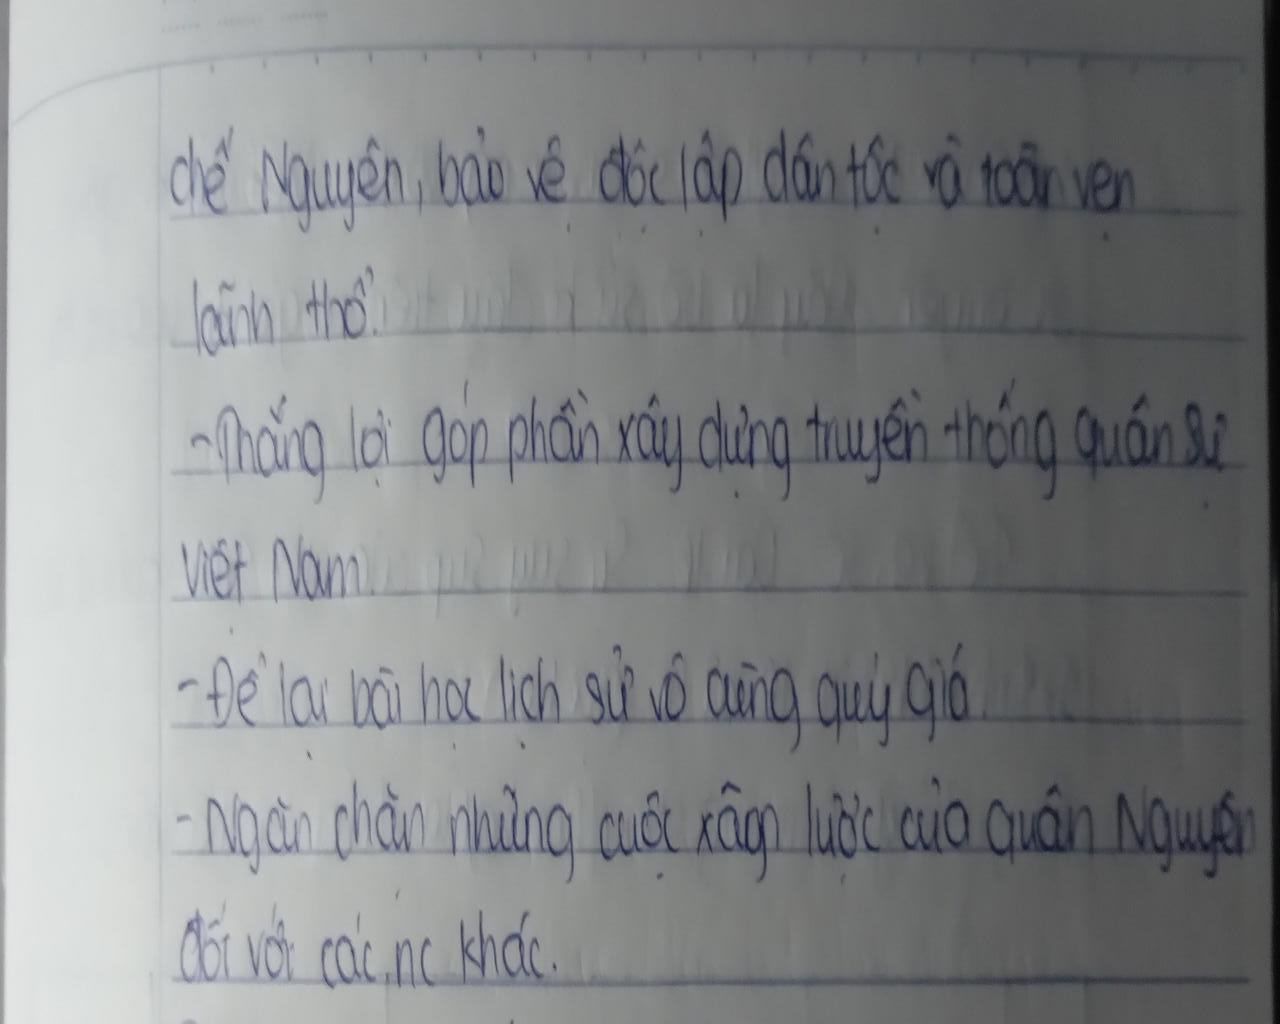 chế Nguyên, bảo vệ độc lập dân tộc và toàn vẹn
lãnh thổ.
- Thắng lợi góp phần xây dựng truyền thống quân sự
Việt Nam.
- Để lại bài học lịch sử vô cùng quý giá.
- Ngăn chặn những cuộc xâm lược của quân Nguyên
đối với các nc khác.